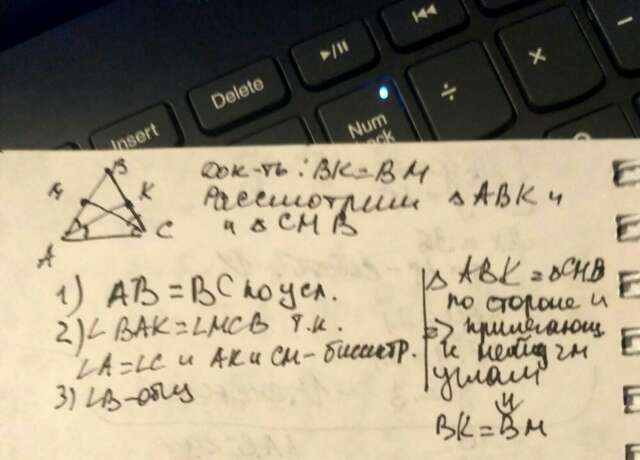 Delete
Insert
Num
÷
×
B
K
A
C
Док-ть: BK=BM
Рассмотрим ▵ ABK и
и ▵ CMB
1) AB = BC по усл.
2) ∠BAK=∠MCB т.к.
∠A=∠C и AK и CM - биссектр.
3) ∠B-общ
▵ ABK = ▵CMB
по стороне и
=> прилегающ
к ней 2м
углам
⇓
BK = BM